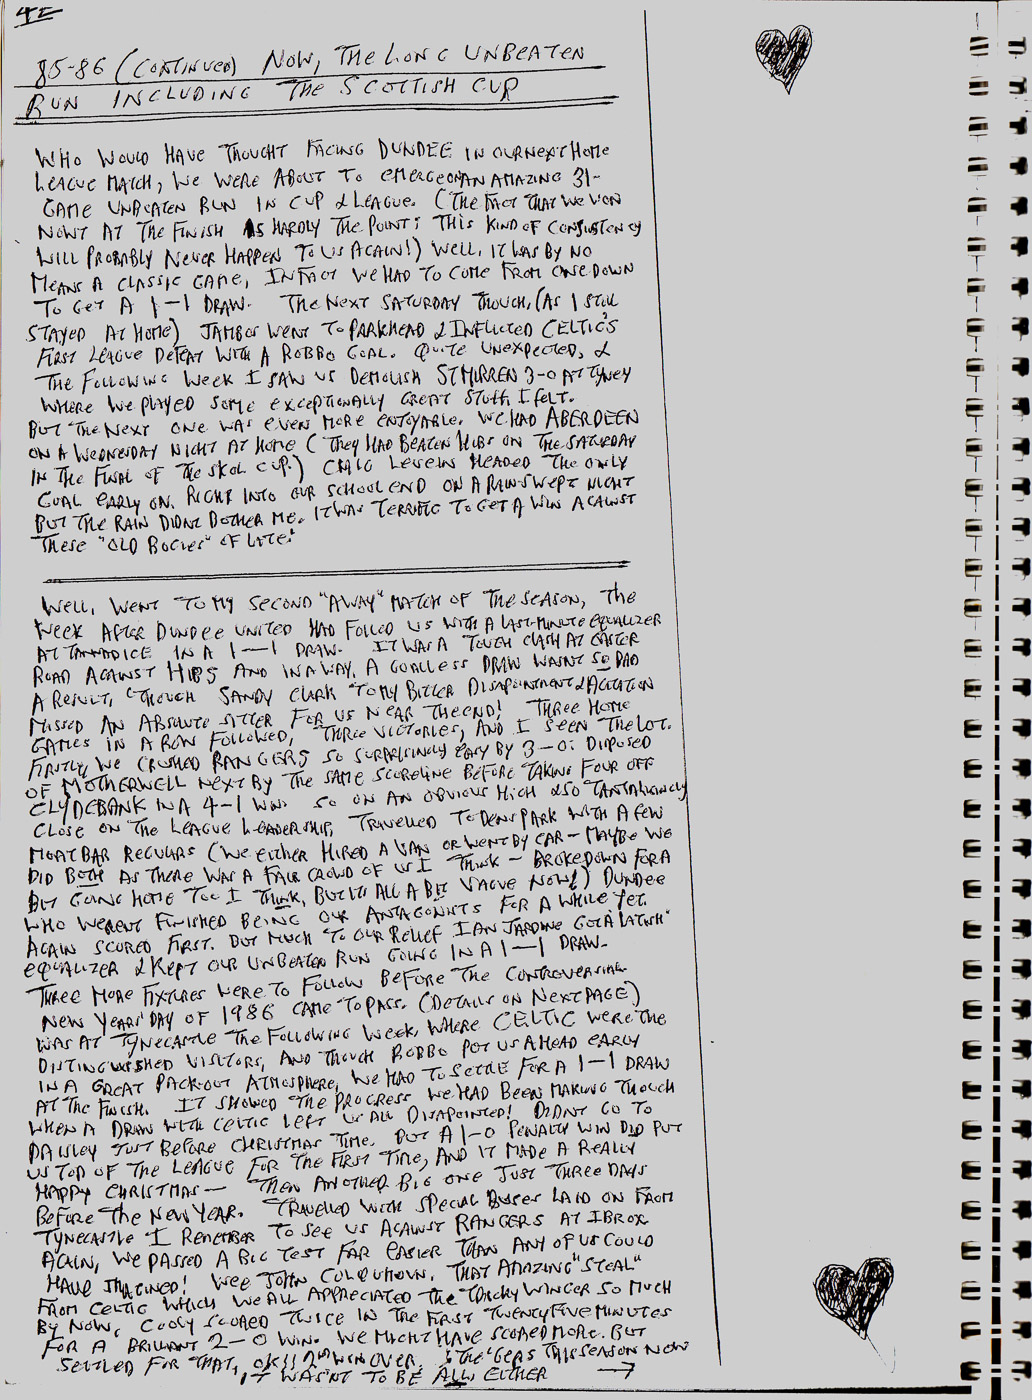 42
85-86 (CONTINUED) NOW, THE LONG UNBEATEN
RUN INCLUDING THE SCOTTISH CUP
WHO WOULD HAVE THOUGHT FACING DUNDEE IN OUR NEXT HOME
LEAGUE MATCH, WE WERE ABOUT TO EMERGE ON AN AMAZING 31-
GAME UNBEATEN RUN IN CUP & LEAGUE. (THE FACT THAT WE WON
NOWT AT THE FINISH IS HARDLY THE POINT; THIS KIND OF CONSISTENCY
WILL PROBABLY NEVER HAPPEN TO US AGAIN!) WELL, IT WAS BY NO
MEANS A CLASSIC GAME, INFACT WE HAD TO COME FROM ONE DOWN
TO GET A 1-1 DRAW. THE NEXT SATURDAY THOUGH, (AS I STILL
STAYED AT HOME) JAMBOS WENT TO PARKHEAD & INFLICTED CELTIC'S
FIRST LEAGUE DEFEAT WITH A ROBBO GOAL. QUITE UNEXPECTED, &
THE FOLLOWING WEEK I SAW US DEMOLISH ST MIRREN 3-0 AT TYNEY
WHERE WE PLAYED SOME EXCEPTIONALLY GREAT STUFF I FELT.
BUT THE NEXT ONE WAS EVEN MORE ENJOYABLE. WE HAD ABERDEEN
ON A WEDNESDAY NIGHT AT HOME (THEY HAD BEATEN HIBS ON THE SATURDAY
IN THE FINAL OF THE SKOL CUP.) CRAIG LEVEIN HEADED THE ONLY
GOAL EARLY ON. RIGHT INTO OUR SCHOOL END ON A RAINSWEPT NIGHT
BUT THE RAIN DIDNT BOTHER ME. IT WAS TERRIFIC TO GET A WIN AGAINST
THESE "OLD BOGIES" OF LATE.
WELL, WENT TO MY SECOND "AWAY" MATCH OF THE SEASON, THE
WEEK AFTER DUNDEE UNITED HAD FOILED US WITH A LAST-MINUTE EQUALIZER
AT TANNADICE IN A 1-1 DRAW. IT WAS A TOUGH CLASH AT EASTER
ROAD AGAINST HIBS AND IN A WAY, A GOALLESS DRAW WASNT SO BAD
A RESULT, THOUGH SANDY CLARK TO MY BITTER DISAPPOINTMENT & AGITATION
MISSED AN ABSOLUTE SITTER FOR US NEAR THE END! THREE HOME
GAMES IN A ROW FOLLOWED, THREE VICTORIES, AND I SEEN THE LOT.
FIRSTLY, WE CRUSHED RANGERS SO SURPRISINGLY EASY BY 3-0: DISPOSED
OF MOTHERWELL NEXT BY THE SAME SCORELINE BEFORE TAKING FOUR OFF
CLYDEBANK IN A 4-1 WIN. SO ON AN OBVIOUS HIGH & SO TANTALISINGLY
CLOSE ON THE LEAGUE LEADERSHIP, TRAVELLED TO DENS PARK WITH A FEW
MOAT BAR REGULARS (WE EITHER HIRED A VAN OR WENT BY CAR - MAYBE WE
DID BOTH AS THERE WAS A FAIR CROWD OF US I THINK - BROKE DOWN FOR A
BIT GOING HOME TOO I THINK, BUT ITS ALL A BIT VAGUE NOW!) DUNDEE
WHO WERENT FINISHED BEING OUR ANTAGONISTS FOR A WHILE YET.
AGAIN SCORED FIRST. BUT MUCH TO OUR RELIEF IAN JARDINE GOT A LATISH
EQUALIZER & KEPT OUR UNBEATEN RUN GOING IN A 1-1 DRAW.
THREE MORE FIXTURES WERE TO FOLLOW BEFORE THE CONTROVERSIAL
NEW YEARS' DAY OF 1986 CAME TO PASS. (DETAILS ON NEXT PAGE)
WAS AT TYNECASTLE THE FOLLOWING WEEK, WHERE CELTIC WERE THE
DISTINGUISHED VISITORS, AND THOUGH ROBBO PUT US AHEAD EARLY
IN A GREAT PACK-OUT ATMOSPHERE, WE HAD TO SETTLE FOR A 1-1 DRAW
AT THE FINISH. IT SHOWED THE PROGRESS WE HAD BEEN MAKING THOUGH
WHEN A DRAW WITH CELTIC LEFT US ALL DISAPOINTED! DIDNT GO TO
PAISLEY JUST BEFORE CHRISTMAS TIME. BUT A 1-0 PENALTY WIN DID PUT
US TOP OF THE LEAGUE FOR THE FIRST TIME, AND IT MADE A REALLY
HAPPY CHRISTMAS - THEN ANOTHER BIG ONE JUST THREE DAYS
BEFORE THE NEW YEAR. TRAVELLED WITH SPECIAL BUSES LAID ON FROM
TYNECASTLE I REMEMBER TO SEE US AGAINST RANGERS AT IBROX
AGAIN, WE PASSED A BIG TEST FAR EASIER THAN ANY OF US COULD
HAVE IMAGINED! WEE JOHN COLQUHOUN, THAT AMAZING "STEAL"
FROM CELTIC WHICH WE ALL APPRECIATED THE TRICKY WINGER SO MUCH
BY NOW, COOLY SCORED TWICE IN THE FIRST TWENTY FIVE MINUTES
FOR A BRILLIANT 2-0 WIN. WE MIGHT HAVE SCORED MORE. BUT
SETTLED FOR THAT, OK!! 2ND WIN OVER THE 'GERS THIS SEASON NOW
IT WASN'T TO BE ALL EITHER →